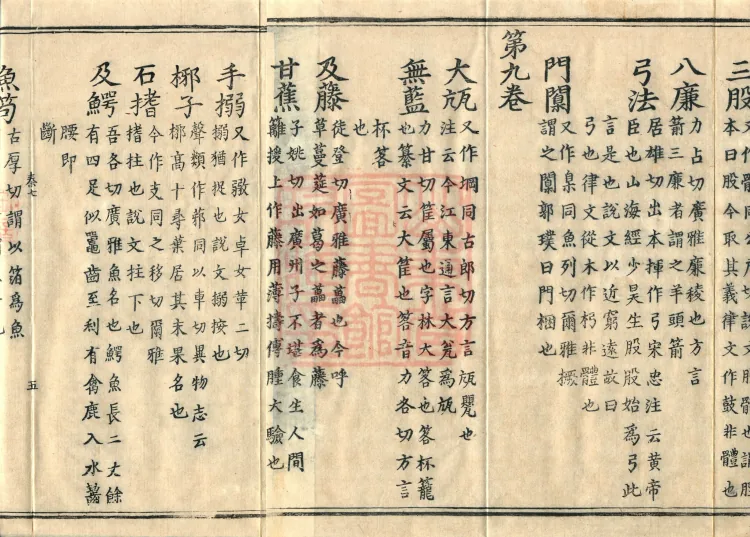 三股
本曰股今取其義律文作鼓非體也
八廉
力占切廣雅廉稜也方言
箭三廉者謂之羊頭箭
弓法
居雄切出本揮作弓宋忠注云黄帝
臣也山海經少昊生股股始為弓此
言是也說文以近窮遠故曰
弓也律文從木作朽非體也
門闑
又作臬同魚列切爾雅橛
謂之闑郭璞曰門梱也
第九卷
大瓨
又作堈同古郎切方言瓨甖也
注云今江東通言大瓮為瓨
無藍
力甘切筐屬也字林大笿也笿杯籠
也纂文云大筐也笿音力各切方言
杯笿
也
及藤
徒登切廣雅藤藟也今呼
草蔓莚如葛之藟者為藤
甘蕉
子姚切出廣州子不堪食生人間
籬援上作藤用薄擣傅腫大驗也
手搦
又作女卓女革二切
搦猶捉也說文搦按也
椰子
聲類作同以車切異物志云
椰高十尋葉居其末果名也
石搘
今作支同之移切爾雅
搘拄也說文拄下也
及鰐
吾各切廣雅魚名也鰐魚長二丈餘
有四足似鼉齒至利有禽鹿入水齧
腰即
斷
秦七
五
魚笱
古厚切謂以箔為魚